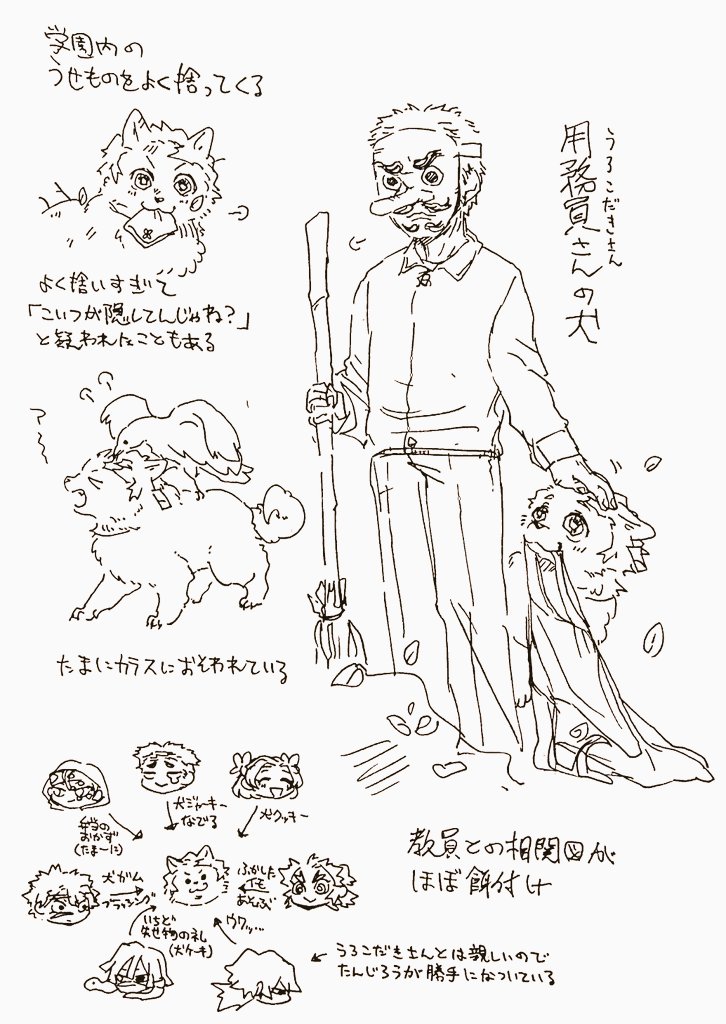 学園内の
うせものをよく捨ってくる
よく捨いすぎて
「こいつが隠してんじゃね?」
と疑われたこともある
うろこだきさん
用務員さんの犬
たまにカラスにおそわれている
弁当の
おかず
(たまーに)
犬ジャーキー
なでる
犬クッキー
犬ガム
ブラッシング
ふかした
イモ
あそぶ
いちど
失せ物の礼
(犬ケーキ)
ウワッ…
うろこだきさんとは親しいので
たんじろうが勝手になついている
教員との相関図が
ほぼ餌付け